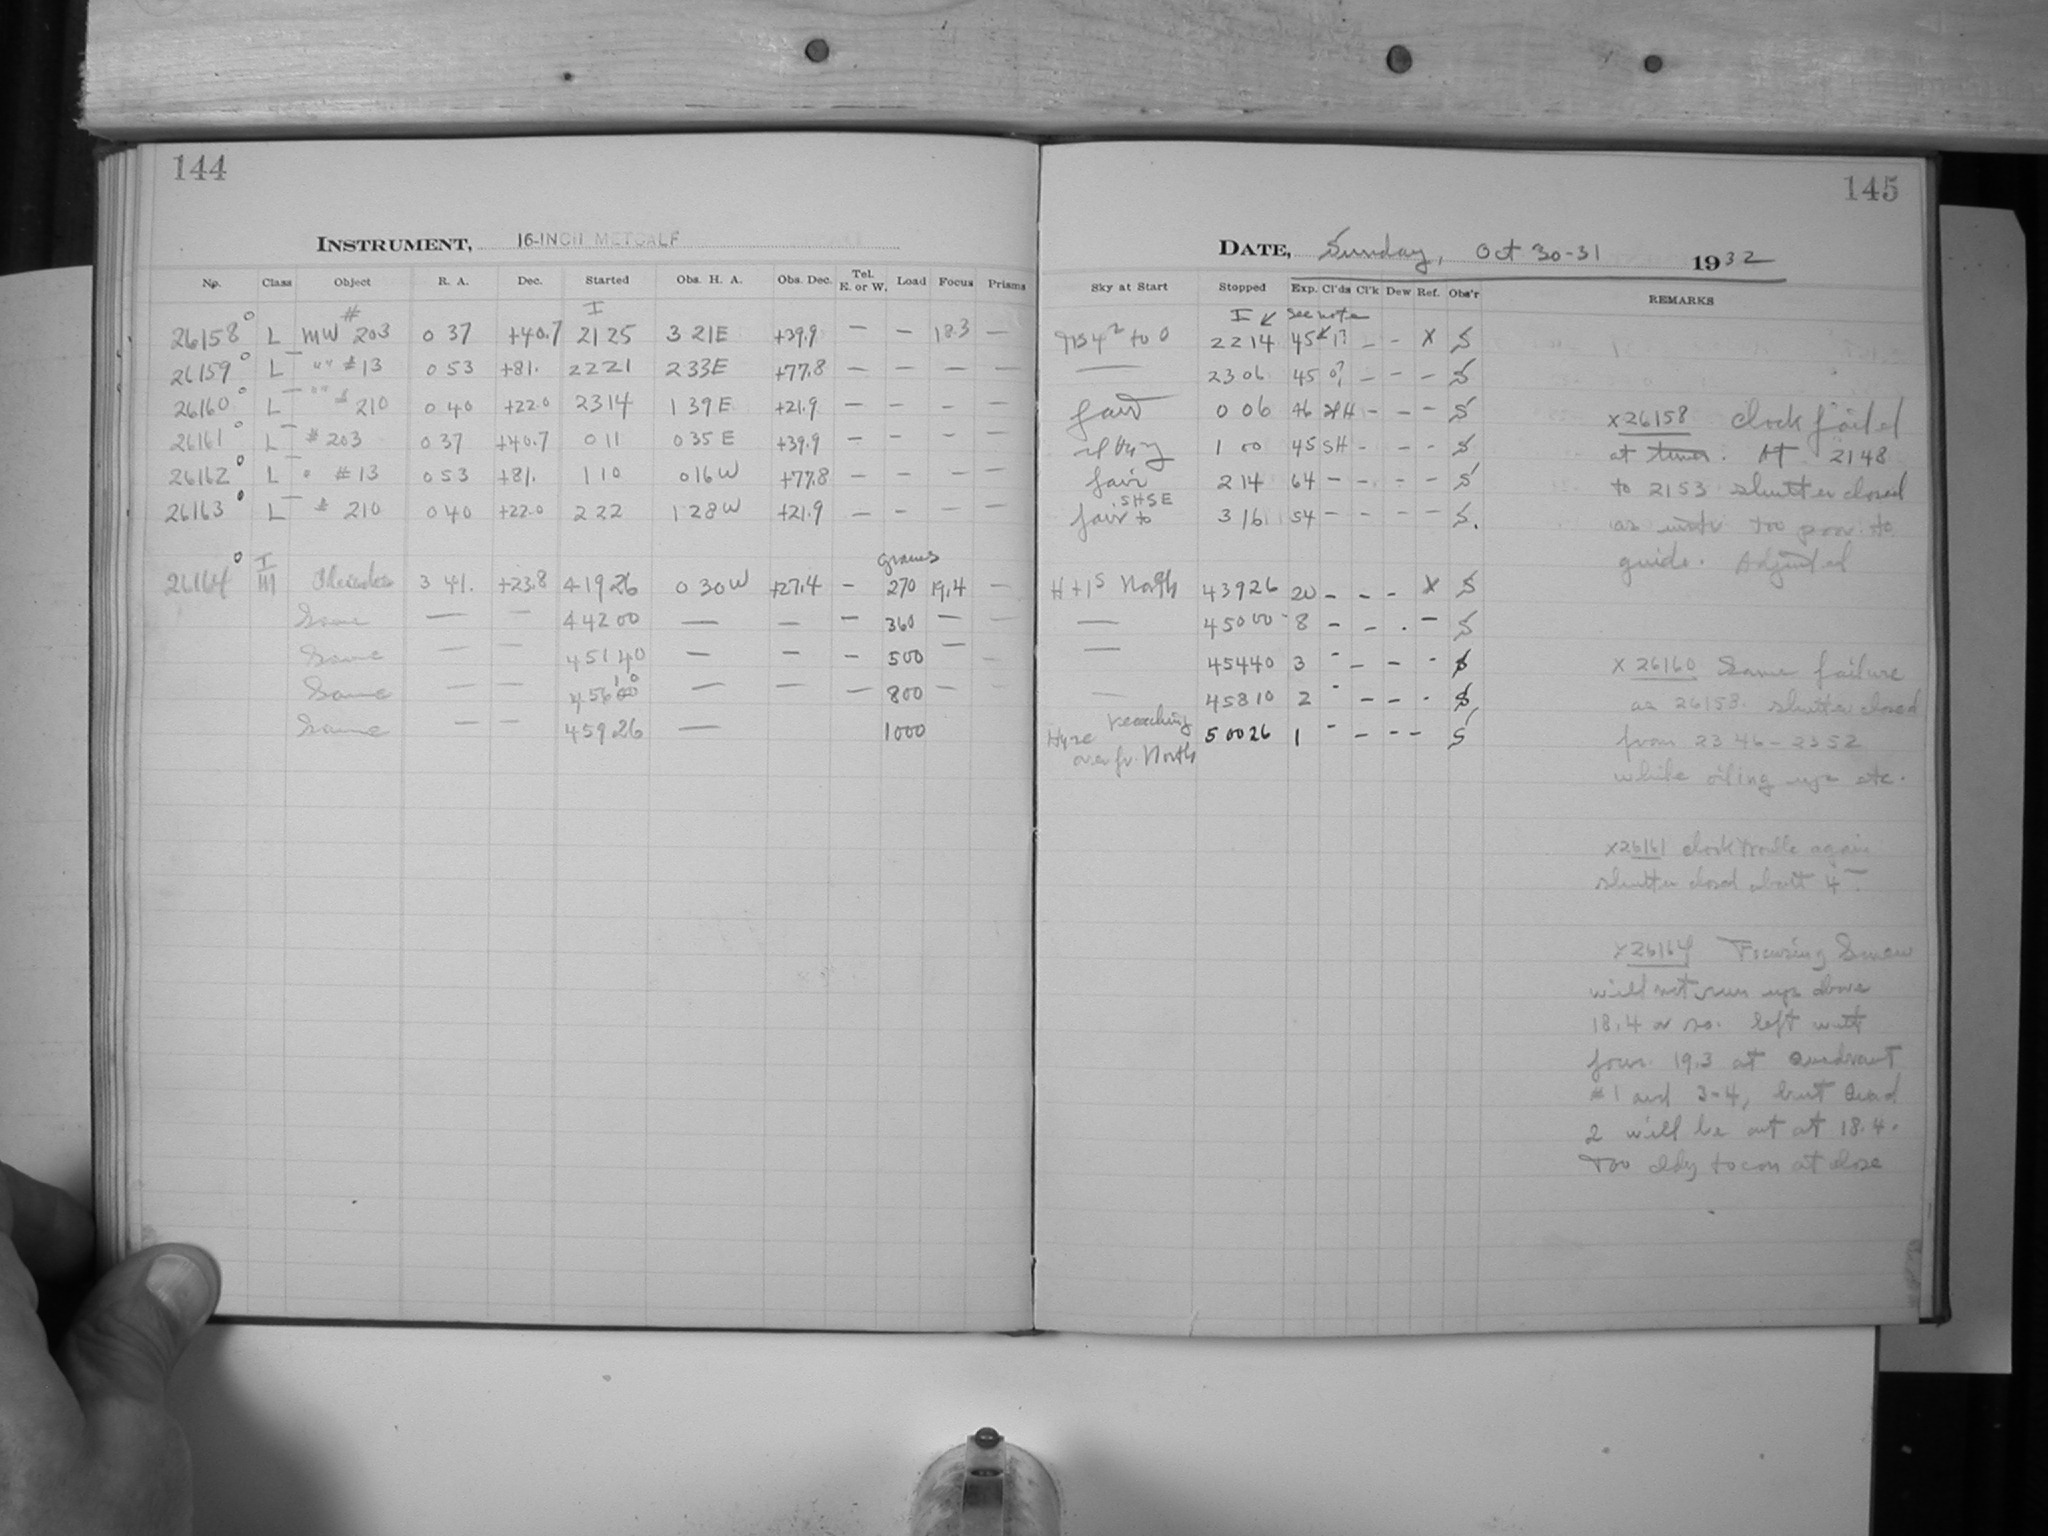 144
INSTRUMENT, 16-INCH METCALF
No. Class Object R. A. Dec. Started Obs. H. A. Obs. Dec. Tel. E. or W. Load Focus Prisms
# I
26158° L MW 203 0 37 +40.7 2125 3 21E +39.9 — — 18.3 —
26159° L — "" #13 0 53 +81. 2221 2 33E +77.8 — — — —
26160° L — "" # 210 0 40 +22.0 2314 1 39E +21.9 — — — —
26161° L — #203 0 37 +40.7 0 11 0 35 E +39.9 — — — —
26162° L " #13 0 53 +81. 1 10 0 16W +77.8 — — — —
26163° L — # 210 0 40 +22.0 2 22 1 28W +21.9 — — — —
grams
26164° I III Pleiades 3 41. +23.8 4 19 26 0 30W +27.4 — 270 19.4 —
Same — — 4 42 00 — — — 360 — —
Same — — 4 51 40 — — — 500 — —
Same — — 4 56 10 — — — 800 — —
Same — — 4 59 26 — 1000
145
DATE, Sunday, Oct 30-31 1932
Sky at Start Stopped Exp. Cl'ds Cl'k Dew Ref. Obs'r REMARKS
I see note
to 0 2214 45 1? — - X S
— 2306 45 0? — - - S
fair 0 06 46 H - - - S
1 00 45 SH - - - S
fair 2 14 64 - - - - S
fair to SHSE 3 16 54 - - - - S.
H + 1S North 4 39 26 20 - - - X S
— 4 50 00 8 - - . - S
— 4 54 40 3 - - - - S
— 4 58 10 2 - - - S
Haze reaching over fr. North 5 00 26 1 - - - - S
x26158 Clock failed
at times. At 2148
to 2153 shutter closed
as motr too poor to
guide. Adjusted
X 26160 Same failure
as 26158. shutter closed
from 23 46 - 2352
while oiling up etc.
x26161 clock trouble again
shutter closed about 4
x26164 Focusing Screw
will not run up above
18.4 or so. left with
focus 19.3 at Quadrant
#1 and 3-4, but Quad
2 will be out at 18.4.
Too cldy to con at close